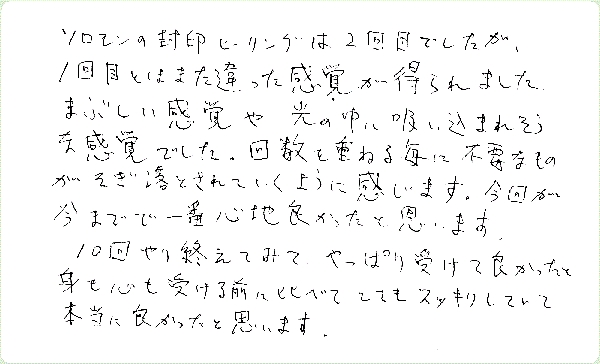 ソロモンの封印ヒーリングは2回目でしたが、
1回目とはまた違った感覚が得られました。
まぶしい感覚や 光の中に吸い込まれそう
な感覚でした。回数を重ねる毎に不要なもの
がそぎ落とされていくように感じます。今回が
今までで一番心地良かったと思います。
10回やり終えてみて、やっぱり受けて良かったと
身も心も受ける前に比べてとてもスッキリしていて
本当に良かったと思います。